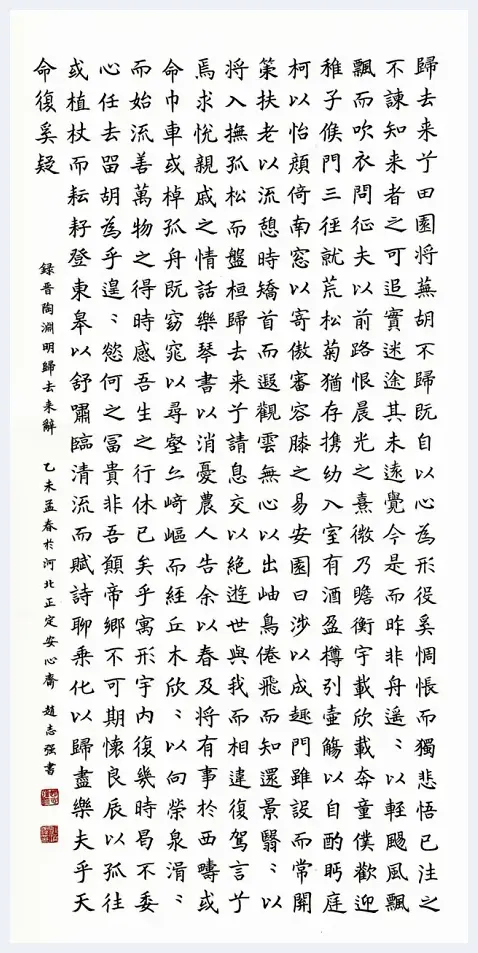 歸去来兮田園將蕪胡不歸既自以心為形役奚惆悵而獨悲悟已往之
不諫知来者之可追實迷途其未遠覺今是而昨非舟遥〻以輕颺風飄
飄而吹衣問征夫以前路恨晨光之熹微乃瞻衡宇載欣載奔童僕歡迎
稚子候門三徑就荒松菊猶存携幼入室有酒盈樽引壺觴以自酌眄庭
柯以怡顔倚南窓以寄傲審容膝之易安園日涉以成趣門雖設而常開
策扶老以流憩時矯首而遐觀雲無心以出岫鳥倦飛而知還景翳〻以
將入撫孤松而盤桓歸去来兮請息交以絶遊世與我而相違復駕言兮
焉求悦親戚之情話樂琴書以消憂農人告余以春及將有事於西疇或
命巾車或棹孤舟既窈窕以尋壑亦崎嶇而経丘木欣〻以向榮泉涓〻
而始流善萬物之得時感吾生之行休已矣乎寓形宇内復幾時曷不委
心任去留胡為乎遑〻慾何之冨貴非吾願帝鄉不可期懷良辰以孤往
或植杖而耘耔登東皋以舒嘯臨清流而賦詩聊乗化以歸盡樂夫乎天
命復奚疑
錄晉陶淵明歸去来辭 乙未孟春於河北正定安心齋 趙志强書